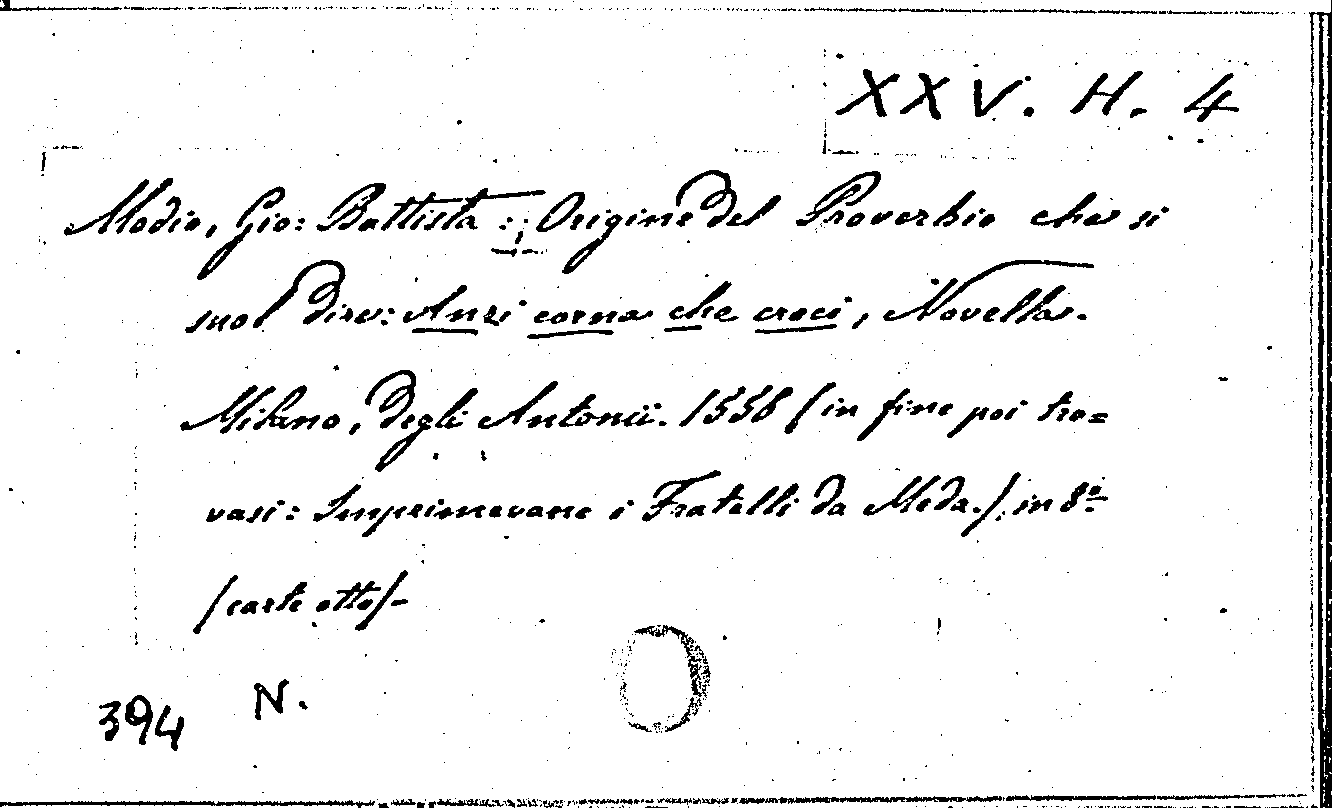 XXV. H. 4
Modio, Gio: Battista:; Origine del Proverbio che si
suol dire: Anzi corna che croci, Novella.
Milano, degli Antonii. 1558 (in fine poi tro=
vasi: Imprimevano i Fratelli da Meda.) in 8º
(carte otto)-
394 N.